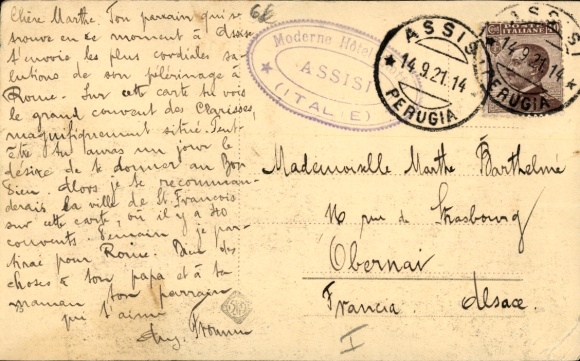 Chère Marthe. Ton parrain qui se
trouve en ce moment à Assise
t'envoie les plus cordiales sa-
lutions de son pèlerinage à
Rome. Sur cette carte tu vois
le grand couvent des Clarisses,
magnifiquement situé. Peut-
être tu auras un jour le
désire de te donner au Bon
Dieu. Alors je te recomman-
derais la ville de St François
sur cette carte, où il y a 40
couvents. Demain je par-
tirai pour Rome. Bien des
choses à ton papa et à ta
maman ton parrain
qui t'aime
6€
Moderne Hôtel
ASSISI
(ITALIE)
ASSISI
14.9.21.14
PERUGIA
ITALIANE
ASSISI
14.9.21.14
PERUGIA
Mademoiselle Marthe Barthelmé
16 rue de Strasbourg
Obernai
Francia. Alsace.
I